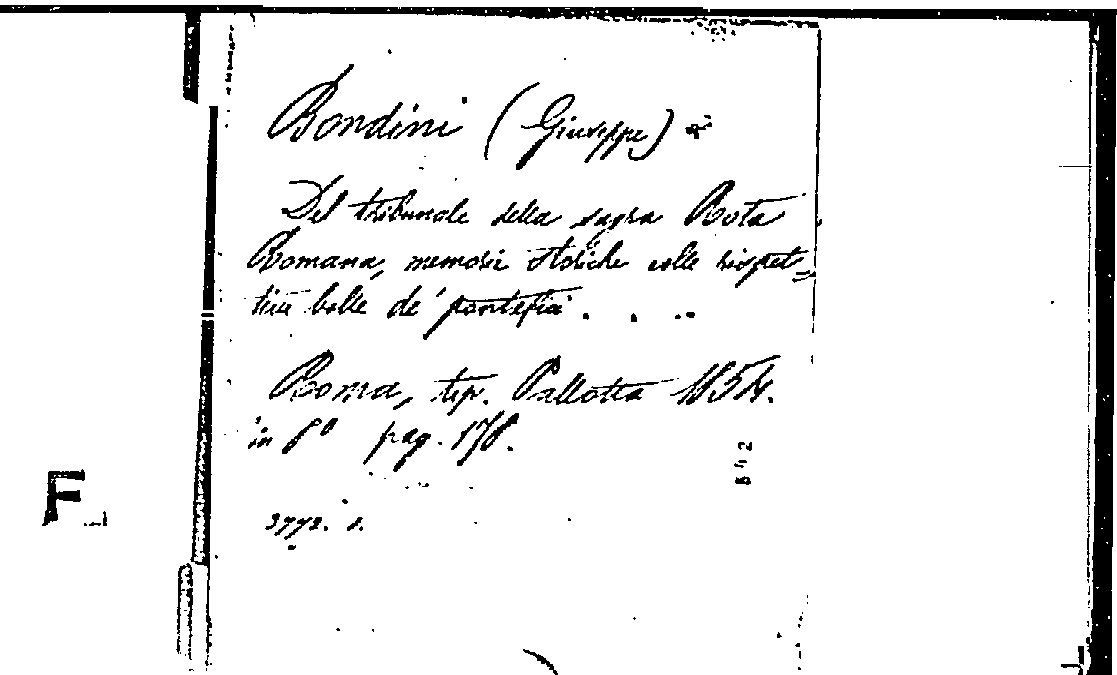 Bondini (Giuseppe) *
Del tribunale della sagra Rota
Romana, memorie storiche colle rispet=
tive bolle de' pontefici . . . .
Roma, tip. Pallotta 1854.
in 8° pag. 178.
3772. 2.
F